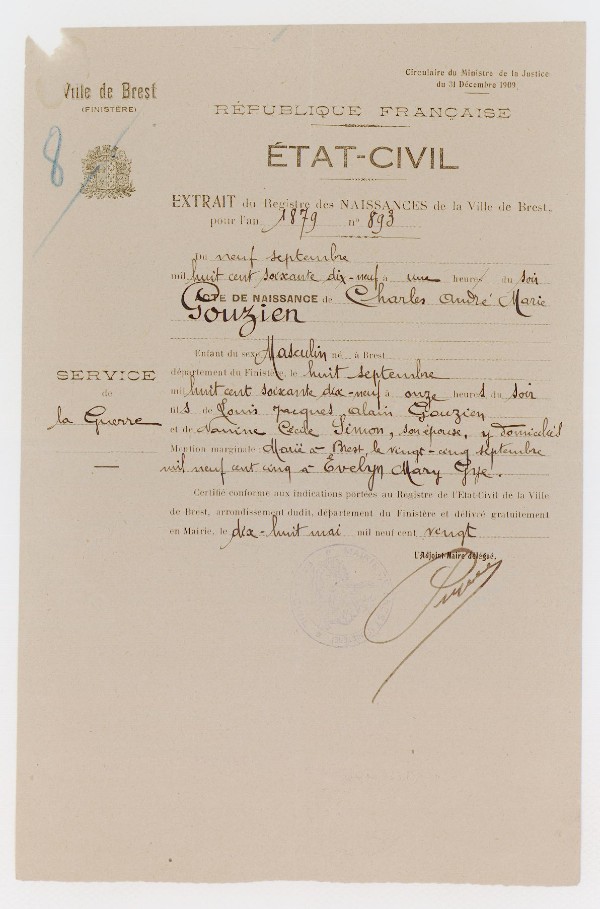 Ville de Brest
(FINISTÈRE)
8
Circulaire du Ministre de la Justice
du 31 Décembre 1909
RÉPUBLIQUE FRANÇAISE
ÉTAT-CIVIL
EXTRAIT du Registre des NAISSANCES de la Ville de Brest,
pour l'an 1879 n° 893
Du neuf septembre
mil huit cent soixante dix-neuf à une heure du soir
ACTE DE NAISSANCE de Charles André Marie
Gouzien
Enfant du sexe Masculin né à Brest
département du Finistère, le huit septembre
mil huit cent soixante dix-neuf à onze heures du soir
fils de Louis Jacques Alain Gouzien
et de Nanine Cécile Simon, son épouse, y domiciliés
Mention marginale: Marié à Brest, le vingt-cinq septembre
mil neuf cent cinq à Evelyn Mary Gye.
SERVICE
de
la Guerre
Certifié conforme aux indications portées au Registre de l'Etat-Civil de la Ville
de Brest, arrondissement dudit, département du Finistère et délivré gratuitement
en Mairie, le dix-huit mai mil neuf cent vingt
L'Adjoint Maire délégué,